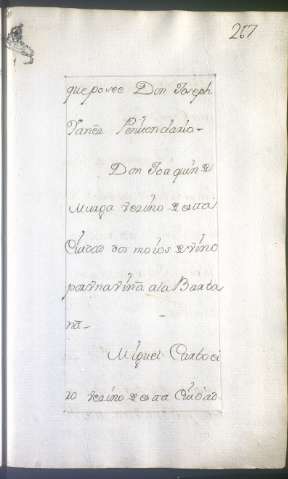 267
que posee Don Joseph
Yanes Penitendario-
Don Joaquin de
Murga vezino de esta
Ciudad dos moios de vino
por una viña a la Banda
na-
Miguel Cardoci
zo vezino de esta Ciudad